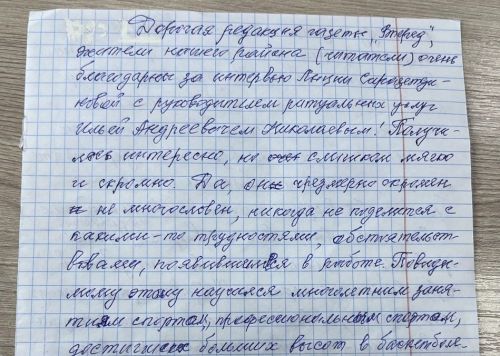 Дорогая редакция газеты "Вперёд",
жители нашего района (читатели) очень
благодарны за интервью Люции
новой с руководителем ритуальных услуг
Ильёй Андреевичем Николаевым. Получи-
лось интересно, но слишком мягко
и скромно. Да, он чрезмерно скромен
не многословен, никогда не поделится с
какими-то трудностями, обстоятельст
вами, появившимися в работе. Повиди-
мому этому научился многолетним заня-
тиям спортом, профессиональным спортом,
достигших больших высот в баскетболе.